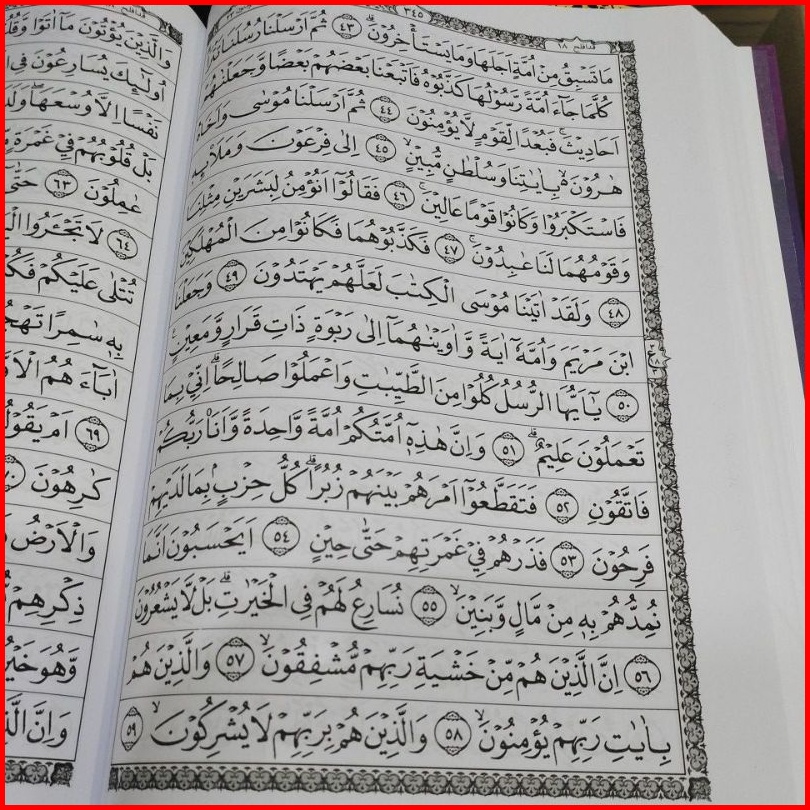 ٣٤٥
قد افلح ١٨
مَا تَسْبِقُ مِنْ اُمَّةٍ اَجَلَهَا وَمَا يَسْتَأْخِرُوْنَ ۗ ﴿٤٣﴾ ثُمَّ اَرْسَلْنَا رُسُلَنَا
كُلَّمَا جَآءَ اُمَّةً رَّسُوْلُهَا كَذَّبُوْهُ فَاَتْبَعْنَا بَعْضَهُمْ بَعْضًا وَّجَعَلْنٰهُمْ
اَحَادِيْثَ ۚ فَبُعْدًا لِّقَوْمٍ لَّا يُؤْمِنُوْنَ ﴿٤٤﴾ ثُمَّ اَرْسَلْنَا مُوْسٰى وَاَخَاهُ
هٰرُوْنَ ۙ بِاٰيٰتِنَا وَسُلْطٰنٍ مُّبِيْنٍ ۙ ﴿٤٥﴾ اِلٰى فِرْعَوْنَ وَمَلَا۟ىِٕهٖ
فَاسْتَكْبَرُوْا وَكَانُوْا قَوْمًا عَالِيْنَ ۚ ﴿٤٦﴾ فَقَالُوْٓا اَنُؤْمِنُ لِبَشَرَيْنِ مِثْلِنَا
وَقَوْمُهُمَا لَنَا عٰبِدُوْنَ ۚ ﴿٤٧﴾ فَكَذَّبُوْهُمَا فَكَانُوْا مِنَ الْمُهْلَكِيْنَ
﴿٤٨﴾ وَلَقَدْ اٰتَيْنَا مُوْسَى الْكِتٰبَ لَعَلَّهُمْ يَهْتَدُوْنَ ﴿٤٩﴾ وَجَعَلْنَا
ابْنَ مَرْيَمَ وَاُمَّهٗٓ اٰيَةً وَّاٰوَيْنٰهُمَآ اِلٰى رَبْوَةٍ ذَاتِ قَرَارٍ وَّمَعِيْنٍ
﴿٥٠﴾ يٰٓاَيُّهَا الرُّسُلُ كُلُوْا مِنَ الطَّيِّبٰتِ وَاعْمَلُوْا صَالِحًا ۗ اِنِّيْ بِمَا
تَعْمَلُوْنَ عَلِيْمٌ ۗ ﴿٥١﴾ وَاِنَّ هٰذِهٖٓ اُمَّتُكُمْ اُمَّةً وَّاحِدَةً وَّاَنَا۠ رَبُّكُمْ
فَاتَّقُوْنِ ﴿٥٢﴾ فَتَقَطَّعُوْٓا اَمْرَهُمْ بَيْنَهُمْ زُبُرًا ۗ كُلُّ حِزْبٍۢ بِمَا لَدَيْهِمْ
فَرِحُوْنَ ﴿٥٣﴾ فَذَرْهُمْ فِيْ غَمْرَتِهِمْ حَتّٰى حِيْنٍ ﴿٥٤﴾ اَيَحْسَبُوْنَ اَنَّمَا
نُمِدُّهُمْ بِهٖ مِنْ مَّالٍ وَّبَنِيْنَ ۙ ﴿٥٥﴾ نُسَارِعُ لَهُمْ فِى الْخَيْرٰتِ ۗ بَلْ لَّا يَشْعُرُوْنَ
﴿٥٦﴾ اِنَّ الَّذِيْنَ هُمْ مِّنْ خَشْيَةِ رَبِّهِمْ مُّشْفِقُوْنَ ۙ ﴿٥٧﴾ وَالَّذِيْنَ هُمْ
بِاٰيٰتِ رَبِّهِمْ يُؤْمِنُوْنَ ۙ ﴿٥٨﴾ وَالَّذِيْنَ هُمْ بِرَبِّهِمْ لَا يُشْرِكُوْنَ ۙ ﴿٥٩﴾
وَالَّذِيْنَ يُؤْتُوْنَ مَآ اٰتَوْا
اُولٰۤىِٕكَ يُسَارِعُوْنَ فِى
نَفْسًا اِلَّا وُسْعَهَا
بَلْ قُلُوْبُهُمْ فِيْ غَمْرَةٍ
عٰمِلُوْنَ ﴿٦٣﴾ حَتّٰٓى
﴿٦٤﴾ لَا تَجْـَٔرُوا
تُتْلٰى عَلَيْكُمْ
بِهٖ سٰمِرًا
اٰبَآءَهُمُ
﴿٦٩﴾ اَمْ
كٰرِهُوْنَ
وَالْاَرْضُ
ذِكْرِهِمْ
وَّهُوَ خَيْرُ
وَاِنَّ